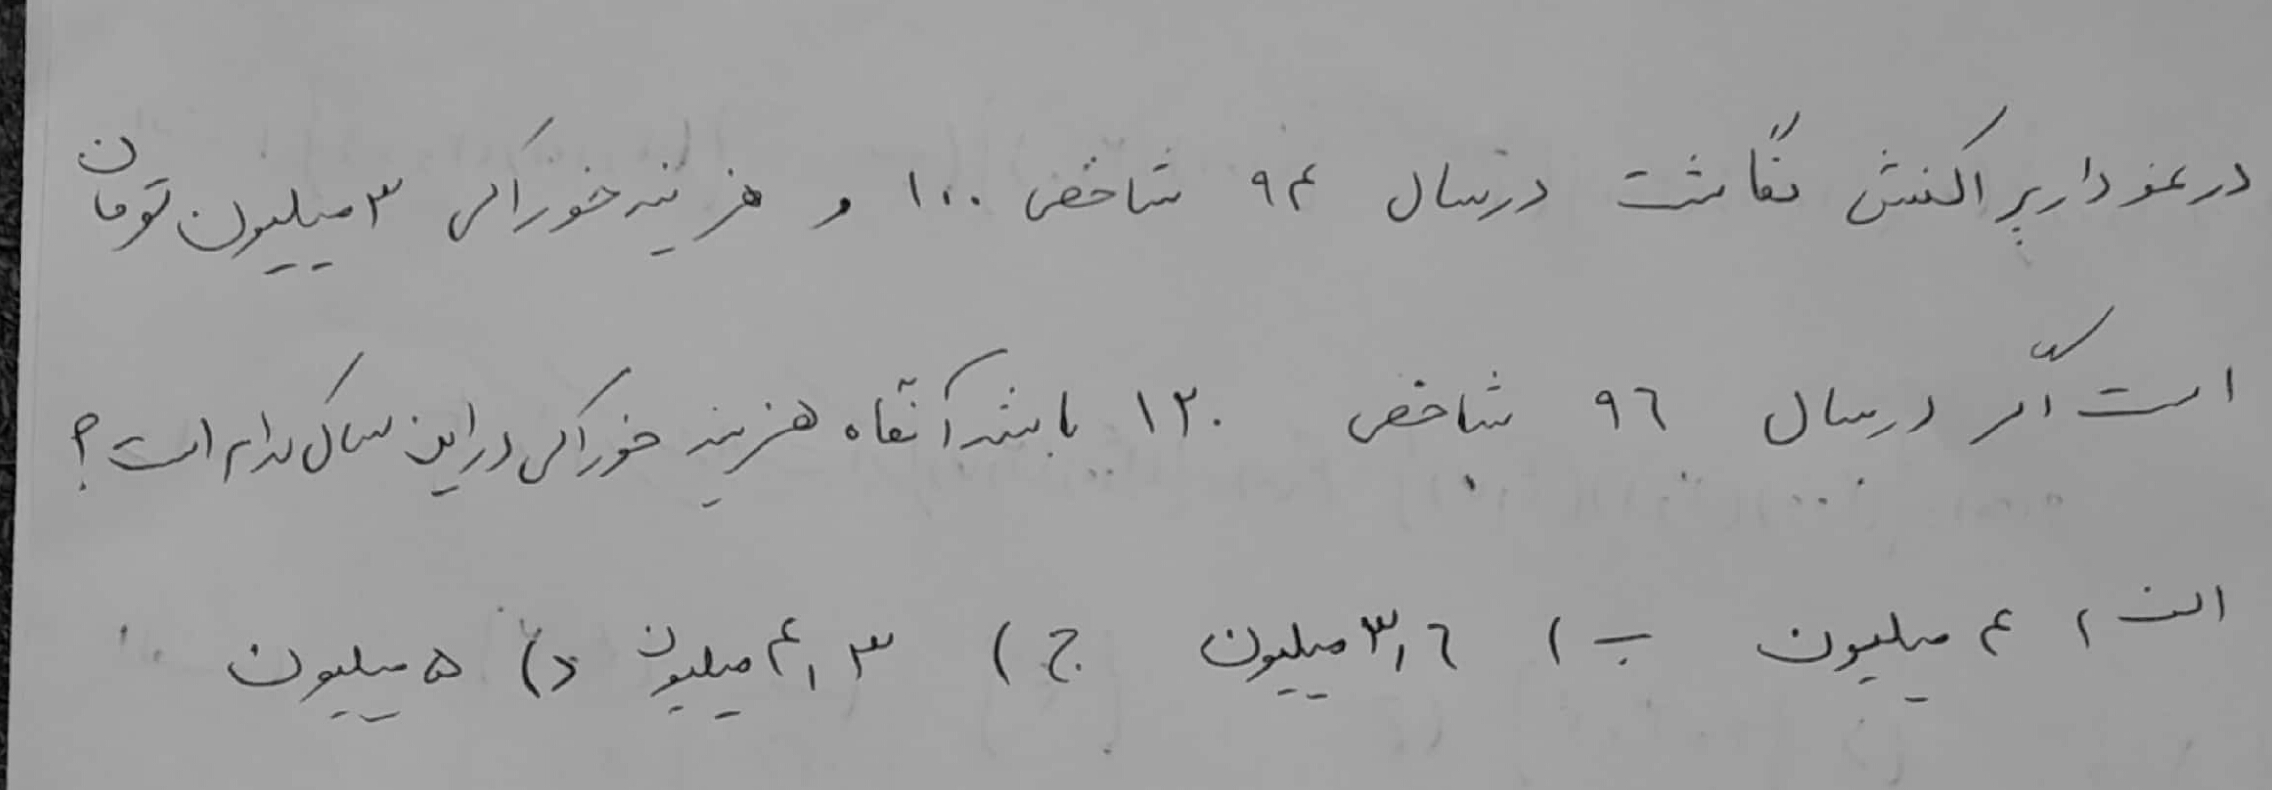 در نمودار پراکنش نگاشت در سال ۹۴ شاخص ۱۰۰ و هزینه خوراکی ۳ میلیون تومان
است اگر در سال ۹۶ شاخص ۱۲۰ باشد آنگاه هزینه خوراکی در این سال کدام است؟
الف) ۴ میلیون ب) ۳٫۶ میلیون ج) ۴٫۳ میلیون د) ۵ میلیون